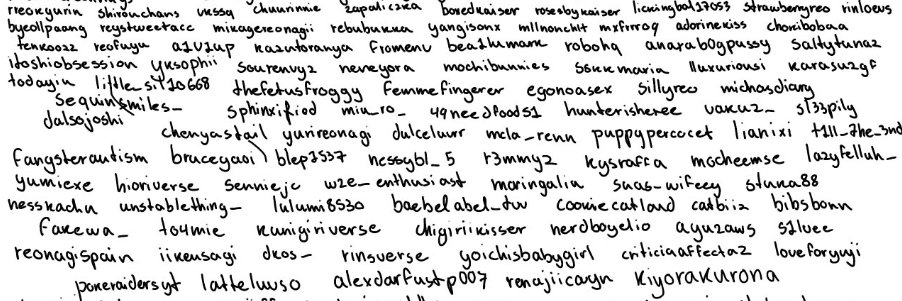 reokyurin shirouchans vkssq chuurinnie zapaliczka boxedkaiser rosesbykaiser lickingbat37053 strawberryreo rinloevs
byeollpaang reystweetacc mikagereonagi rebubukka yangisonx mllnonchlt mxfrrog adorinekiss chokibobaa
tenkoo22 reofuyu a1v1up kazutoranya fromenv bea1humank robohq anarab0gpussy saltytunaz
itoshiobsession yksophii sourenvyz neneyora mochibunnies s6kkmaria lluxuriousi karasuzgf
todayin little_sit10668 thefetusfroggy femmefingerer egonoasex sillyreo michosdiary
sequinsmiles_ sphinxified miu_ro_ 49needfood51 huntersheree vakuz_ st33pily
dalsojoshi
chenyastail yurireonagi dulceluvr mela_renn puppypercocet lianixi t1ll_7he_3nd
fangsterautism bruceyaoi blep3537 nessybl_5 r3mmyz kysraffa mocheemse lazyfelluh_
yumiexe hioriverse senniejc wze_enthusiast moringalia suas_wifeey stuna88
nesskachu unstablething_ lulumi8530 baebelabel_tw cookiecatland catbiiz bibsbonn
fakewa_ to4mie kunigiriverse chigiriikisser nerdboyelio ayuzaws s1lvee
reonagispain iikeusagi dkos_ rinsverse yoichisbabygirl criticiaaffectaz loveforyuji
pokeraidersyt latteluvso alexdarfustp007 renajiicayn kiyorakurona